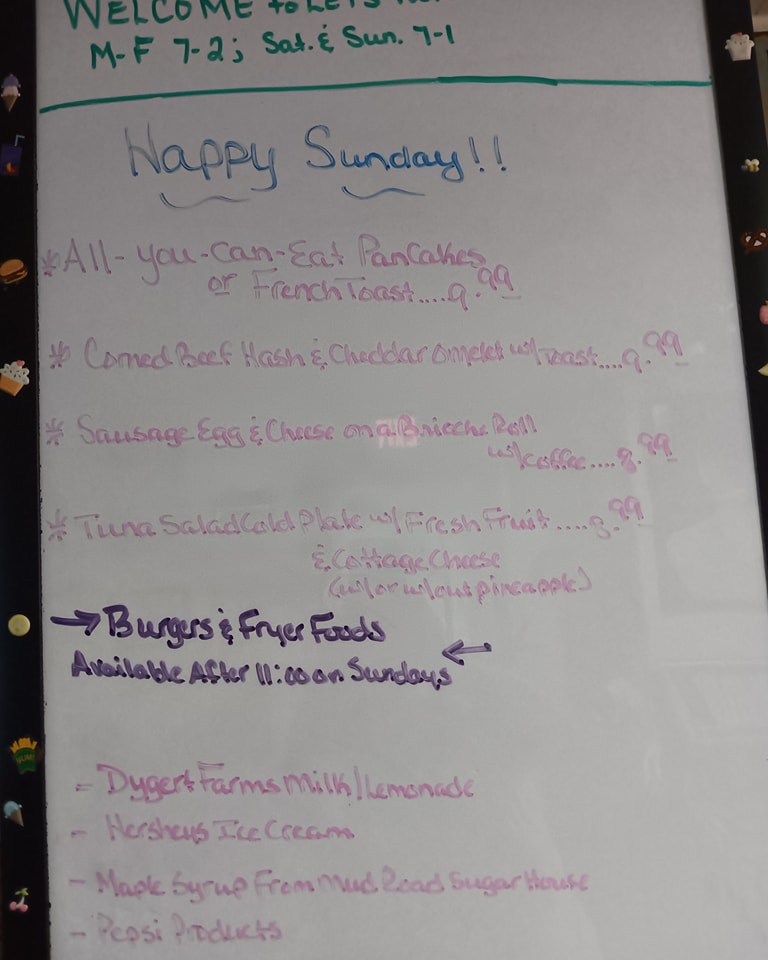 WELCOME to LET'S
M-F 7-2; Sat. & Sun. 7-1
Happy Sunday!!
*All-you-can-Eat Pancakes
or French Toast....9.99
* Corned Beef Hash & Cheddar omelet w/ toast....9.99
* Sausage Egg & Cheese on a Brioche Roll
w/coffee....8.99
* Tuna Salad Cold Plate w/ Fresh Fruit....8.99
& Cottage Cheese
(w/ or w/out pineapple)
→ Burgers & Fryer Foods
Available After 11:00 on Sundays ←
- Dygert Farms Milk/Lemonade
- Hersheys Ice Cream
- Maple Syrup From Mud Road Sugar House
- Pepsi Products